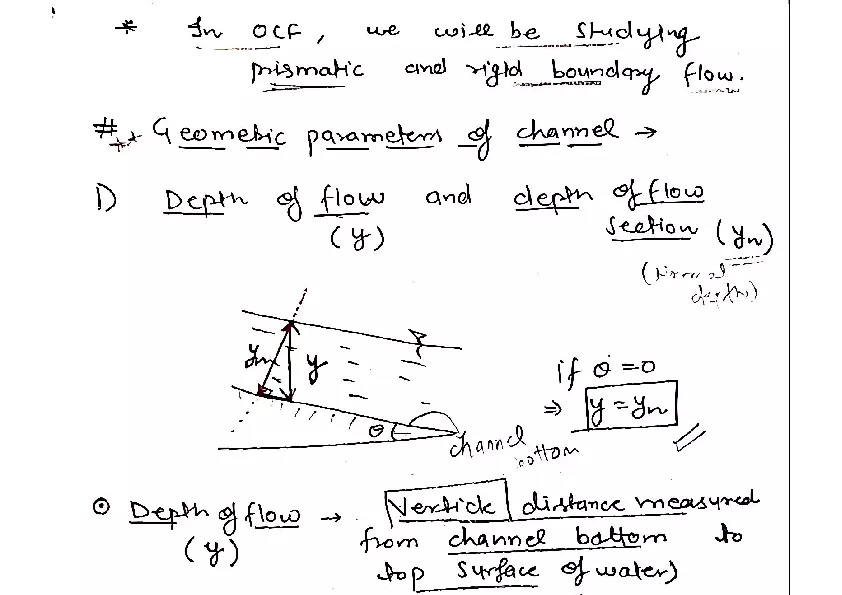 * In OCF, we will be studying
prismatic and rigid boundary flow.
# ** Geometric parameters of channel →
1) Depth of flow and depth of flow
(y) section (yn)
(Normal
depth)
yn y
if θ = 0
⇒ y = yn
θ
channel
bottom
⊙ Depth of flow → Vertick distance measured
(y) from channel bottom to
top surface of water)